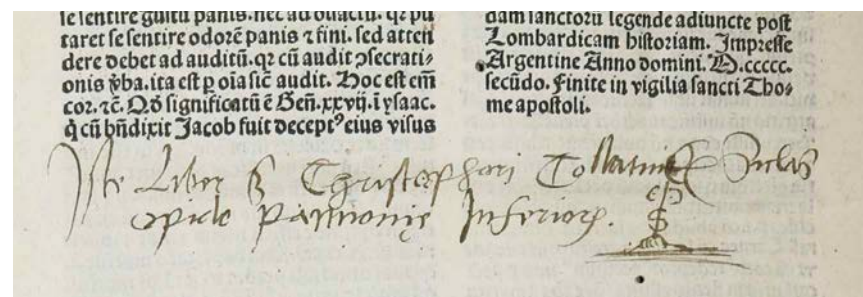 le sentire gustū panis. nec ad odactū. qꝛ pu
taret se sentire odorē panis ⁊ fini. sed atten
dere debet ad auditū. qꝛ cū audit ↄsecrati⸗
onis v̄ba. ita est ꝑ oīa sic̄ audit. Hoc est em̄
coꝛ. ⁊c̄. Qd̄ significatū ē Geñ. xxvij. ī ysaac.
q̇ cū bn̄dixit Jacob fuit decept⁹ eius visus
dam sanctoꝛū legende adiuncte post
Lombardicam historiam. Impresse
Argentine Anno domini. M.ccccc.
secūdo. Finite in vigilia sancti Tho⸗
me apostoli.
Iste Liber Christophori
opido pannonię Inferioꝝ.